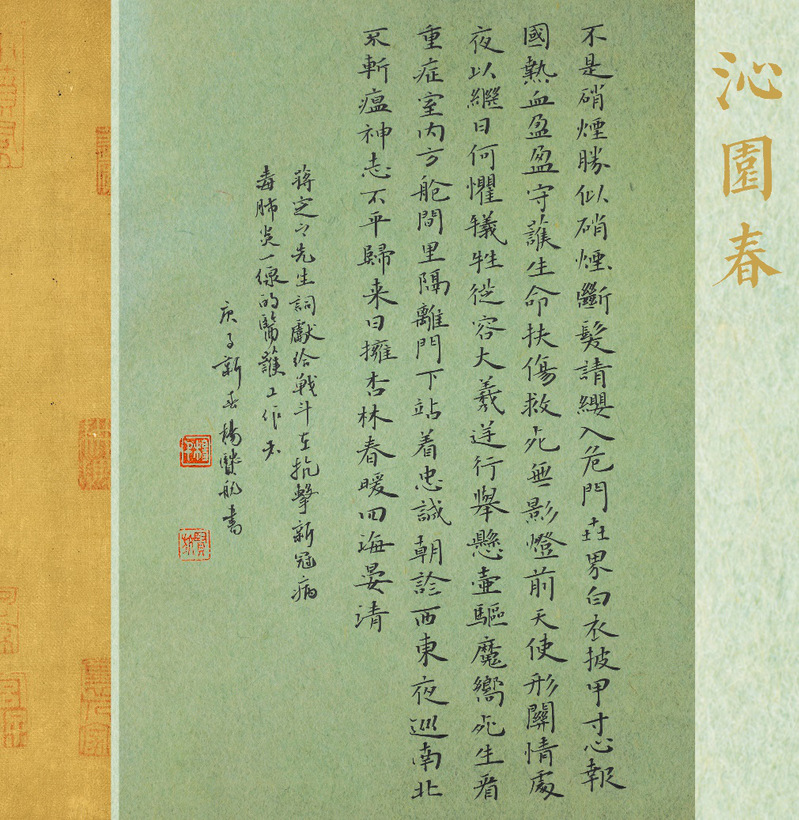 沁園春
不是硝煙勝似硝煙斷髮請纓入危門界白衣披甲寸心報
國熱血盈盈守護生命扶傷救死無影燈前天使形關情處
夜以繼日何懼犧牲從容大義逆行舉懸壺驅魔嚮死生看
重症室内方舱間里隔離門下站着忠誠朝診西東夜巡南北
不斬瘟神志不平歸来日擁杏林春暖四海晏清
蔣定之先生詞獻给戰斗在抗擊新冠病
毒肺炎一線的醫護工作者
庚子新春楊賢航書